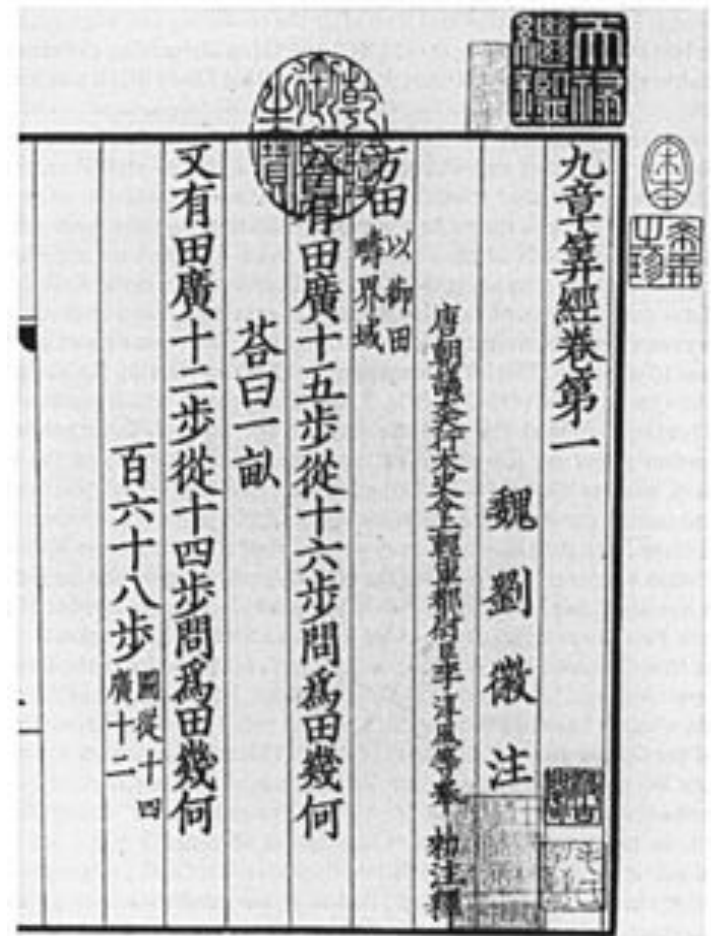 天祿繼鑑
乾隆御覽之寶
九章筭經卷第一
魏劉徽注
唐朝議大夫行太史令上輕車都尉臣李淳風等奉 敕注釋
方田 以御田
疇界域
今有田廣十五步從十六步問爲田幾何
荅曰一畝
又有田廣十二步從十四步問爲田幾何
百六十八步 圖從十四
廣十二